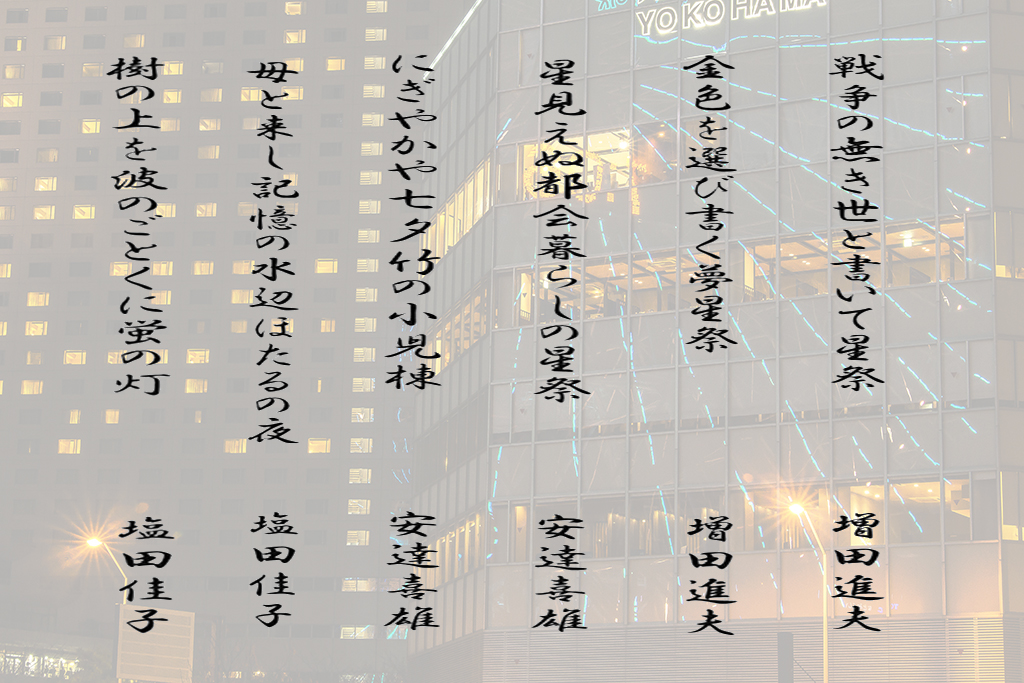 YOKOHAMA
戦争の無き世と書いて星祭
増田進夫
金色を選び書く夢星祭
増田進夫
星見えぬ都会暮らしの星祭
安達喜雄
にぎやかや七夕竹の小児棟
安達喜雄
母と来し記憶の水辺ほたるの夜
塩田佳子
樹の上を波のごとくに蛍の灯
塩田佳子